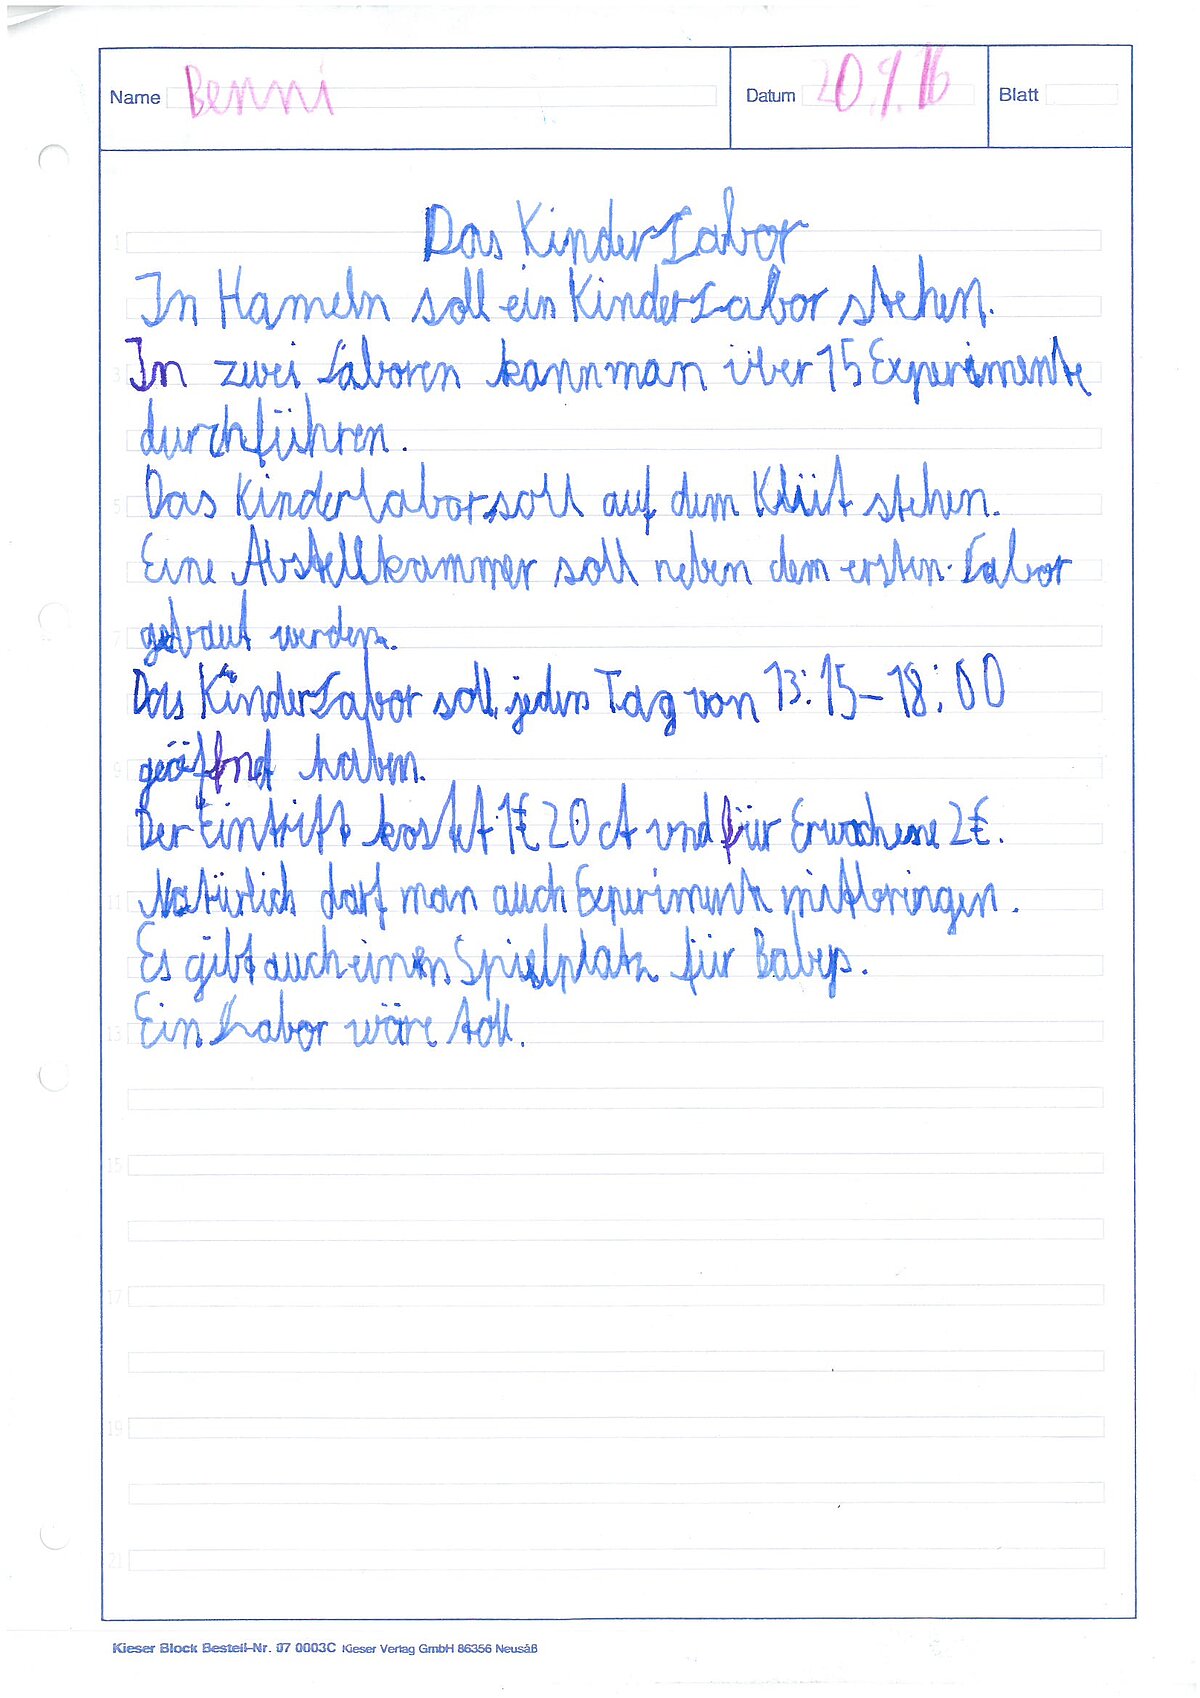 Name Benni Datum 20.9.16 Blatt
Das KinderLabor
In Hameln soll ein KinderLabor stehen.
In zwei Laboren kann man über 15 Experimente
durchführen.
Das Kinderlabor soll auf dem Klüt stehen.
Eine Abstellkammer soll neben dem ersten Labor
gebaut werden.
Das KinderLabor soll jeden Tag von 13:15–18:00
geöffnet haben.
Der Eintritt kostet 1€ 20 ct und für Erwachsene 2€.
Natürlich darf man auch Experimente mitbringen.
Es gibt auch einen Spielplatz für Babys.
Ein Labor wäre toll.
1
3
5
7
9
11
13
15
17
19
21
Kieser Block Bestell-Nr. 07 0003C Kieser Verlag GmbH 86356 Neusäß